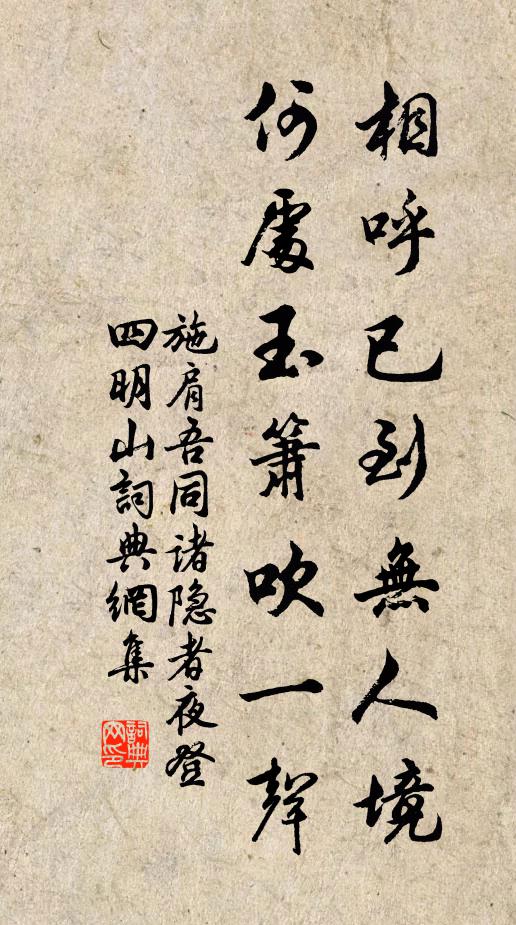 相呼已到無人境
何處玉簫吹一聲
施肩吾同诸隐者夜登
四明山詞典網集
詞典網印